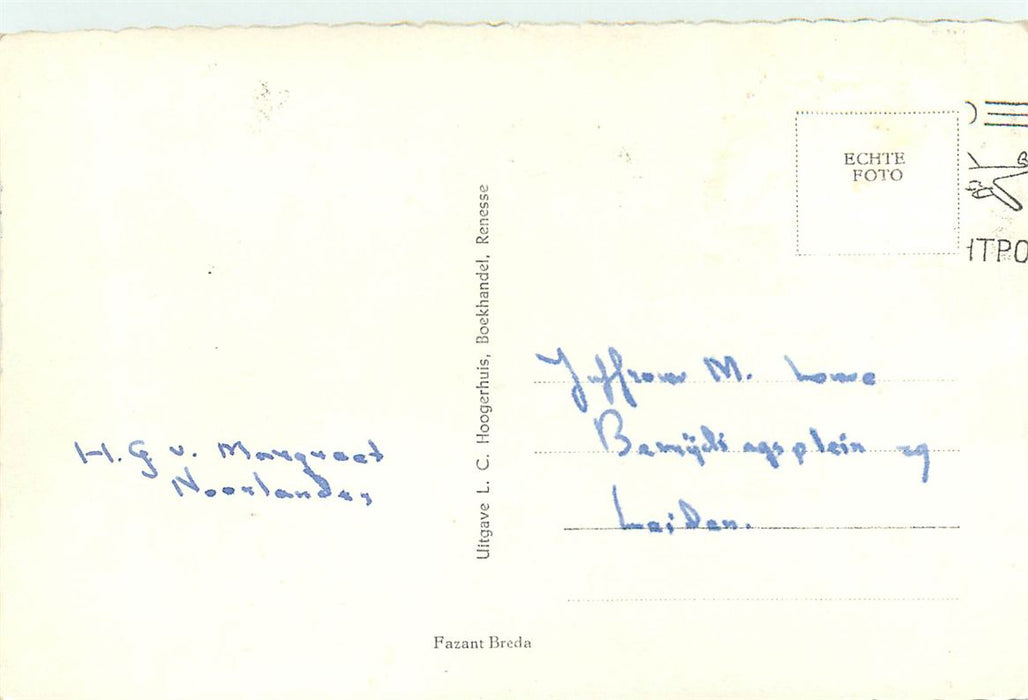 ECHTE
FOTO
HTPO
Uitgave L. C. Hoogerhuis, Boekhandel, Renesse
H. G v. Margreet
Noorlander
Juffrouw M. Louwe
Bevrijdingsplein 29
Leiden.
Fazant Breda